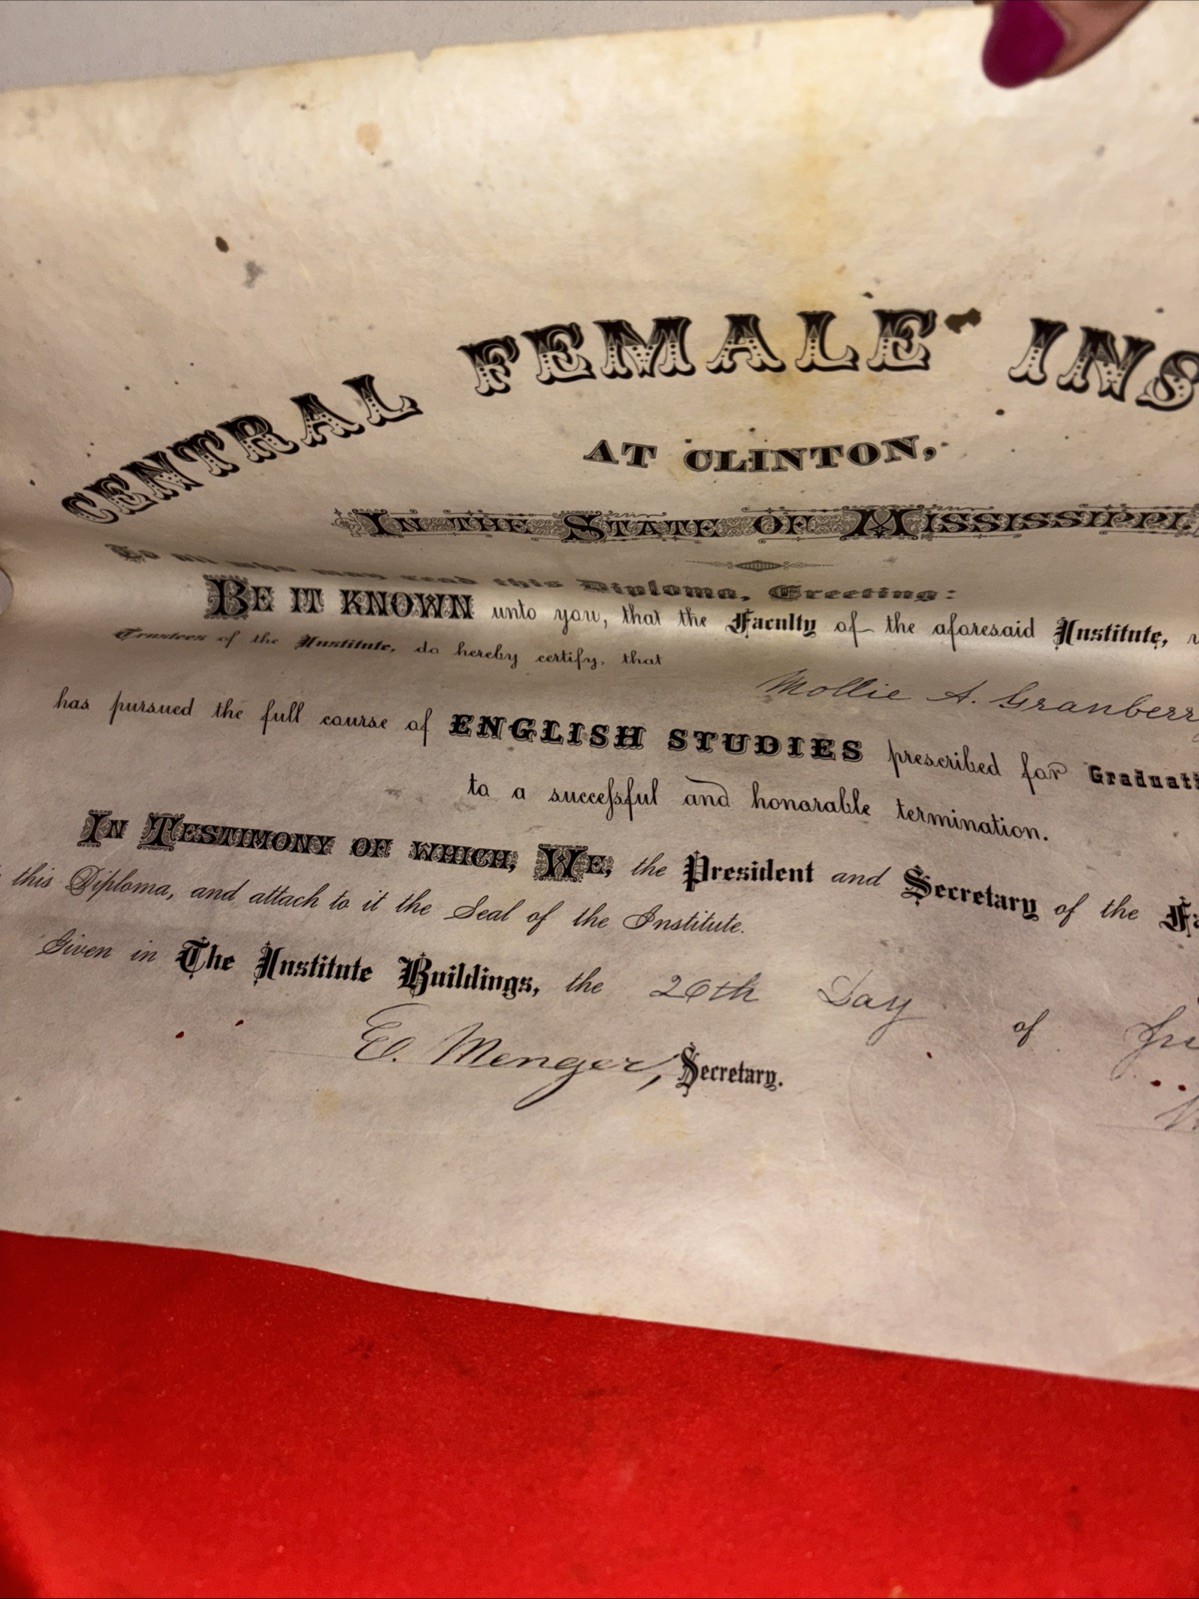 CENTRAL FEMALE INS
AT CLINTON,
IN THE STATE OF MISSISSIPPI.
To all who may read this Diploma, Greeting:
BE IT KNOWN unto you, that the Faculty of the aforesaid Institute,
Trustees of the Institute, do hereby certify, that
Mollie A. Granberry
has pursued the full course of ENGLISH STUDIES prescribed for Graduati
to a successful and honorable termination.
IN TESTIMONY OF WHICH, WE, the President and Secretary of the Fa
this Diploma, and attach to it the Seal of the Institute.
Given in The Institute Buildings, the 26th Day of
E. Menger, Secretary.